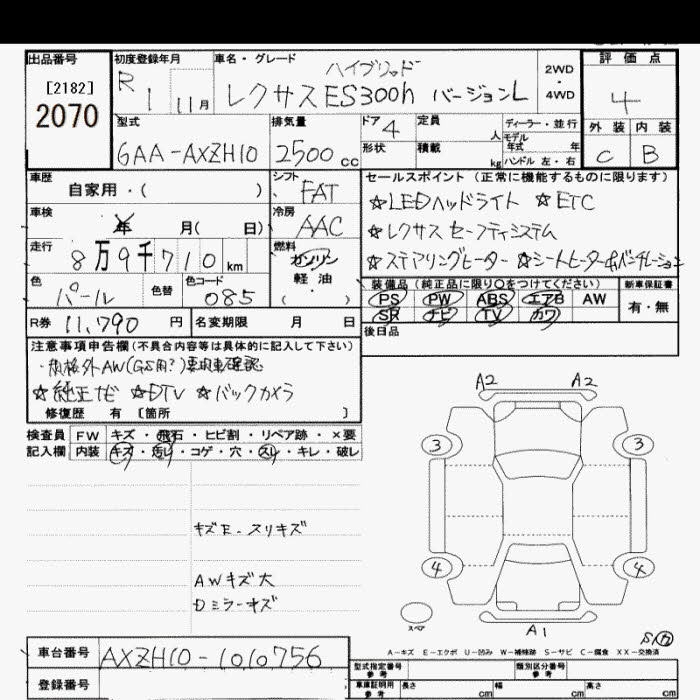 出品番号
[2182]
2070
初度登録年月
R 1 11月
車名・グレード
ハイブリッド
レクサスES300h バージョンL
2WD
・
4WD
評価点
4
外装 内装
C B
型式
6AA-AXZH10
排気量
2500cc
ドア 4
形状
定員 人
積載 kg
ディーラー・並行
モデル
年式 年
ハンドル 左・右
車歴
自家用・( )
シフト
FAT
車検
年 月( 日)
冷房
AAC
走行
8万9千710km
燃料
ガソリン
軽油
・
( )
色
パール
色替
色コード
085
R券 11,790 円
名変期限 月 日
セールスポイント(正常に機能するものに限ります)
☆LEDヘッドライト ☆ETC
☆レクサス セーフティシステム
☆ステアリングヒーター ☆シートヒーター&ベンチレーション
装備品(純正品に限り○をつけてください)
PS PW ABS エアB AW
SR ナビ TV カワ
新車保証書
有・無
後日品
注意事項申告欄(不具合内容等は具体的に記入して下さい)
・規格外AW(GS用?)要現車確認
☆純正ナビ ☆DTV ☆バックカメラ
修復歴 有 [箇所 ]
検査員
記入欄
FW キズ・飛石・ヒビ割・リペア跡・×要
内装 キズ・汚レ・コゲ・穴・スレ・キレ・破レ
キズE・スリキズ
AWキズ大
Dミラーキズ
A2 A2
3 3
4 4
スペア
A1
A-キズ E-エクボ U-凹み W-補修跡 S-サビ C-腐食 XX-交換済
車台番号
AXZH10-1010756
登録番号
型式指定番号
参考
類別区分番号
参考
車庫証明用
参考
長さ cm 幅 cm 高さ cm